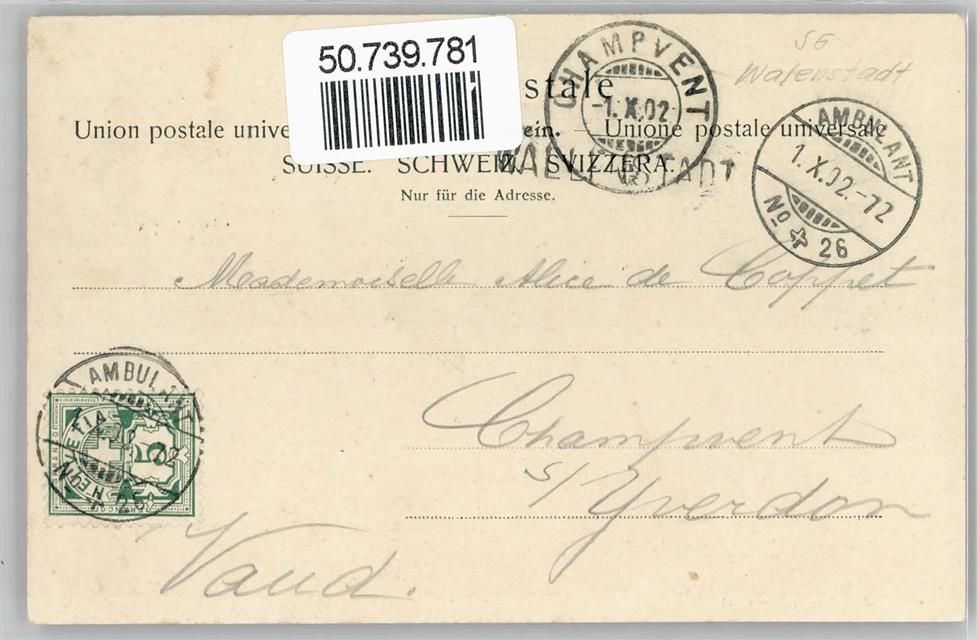 50.739.781
SG
Walenstadt
stale
Union postale unive ein. — Unione postale universale
SUISSE. SCHWEIZ. SVIZZERA.
Nur für die Adresse.
CHAMPVENT
-1.X.02
WALLENSTADT
AMBULANT
1.X.02.-72
No 26
Mademoiselle Alice de Coppet
Champvent
s/ Yverdon
Vaud.
AMBULANT
5